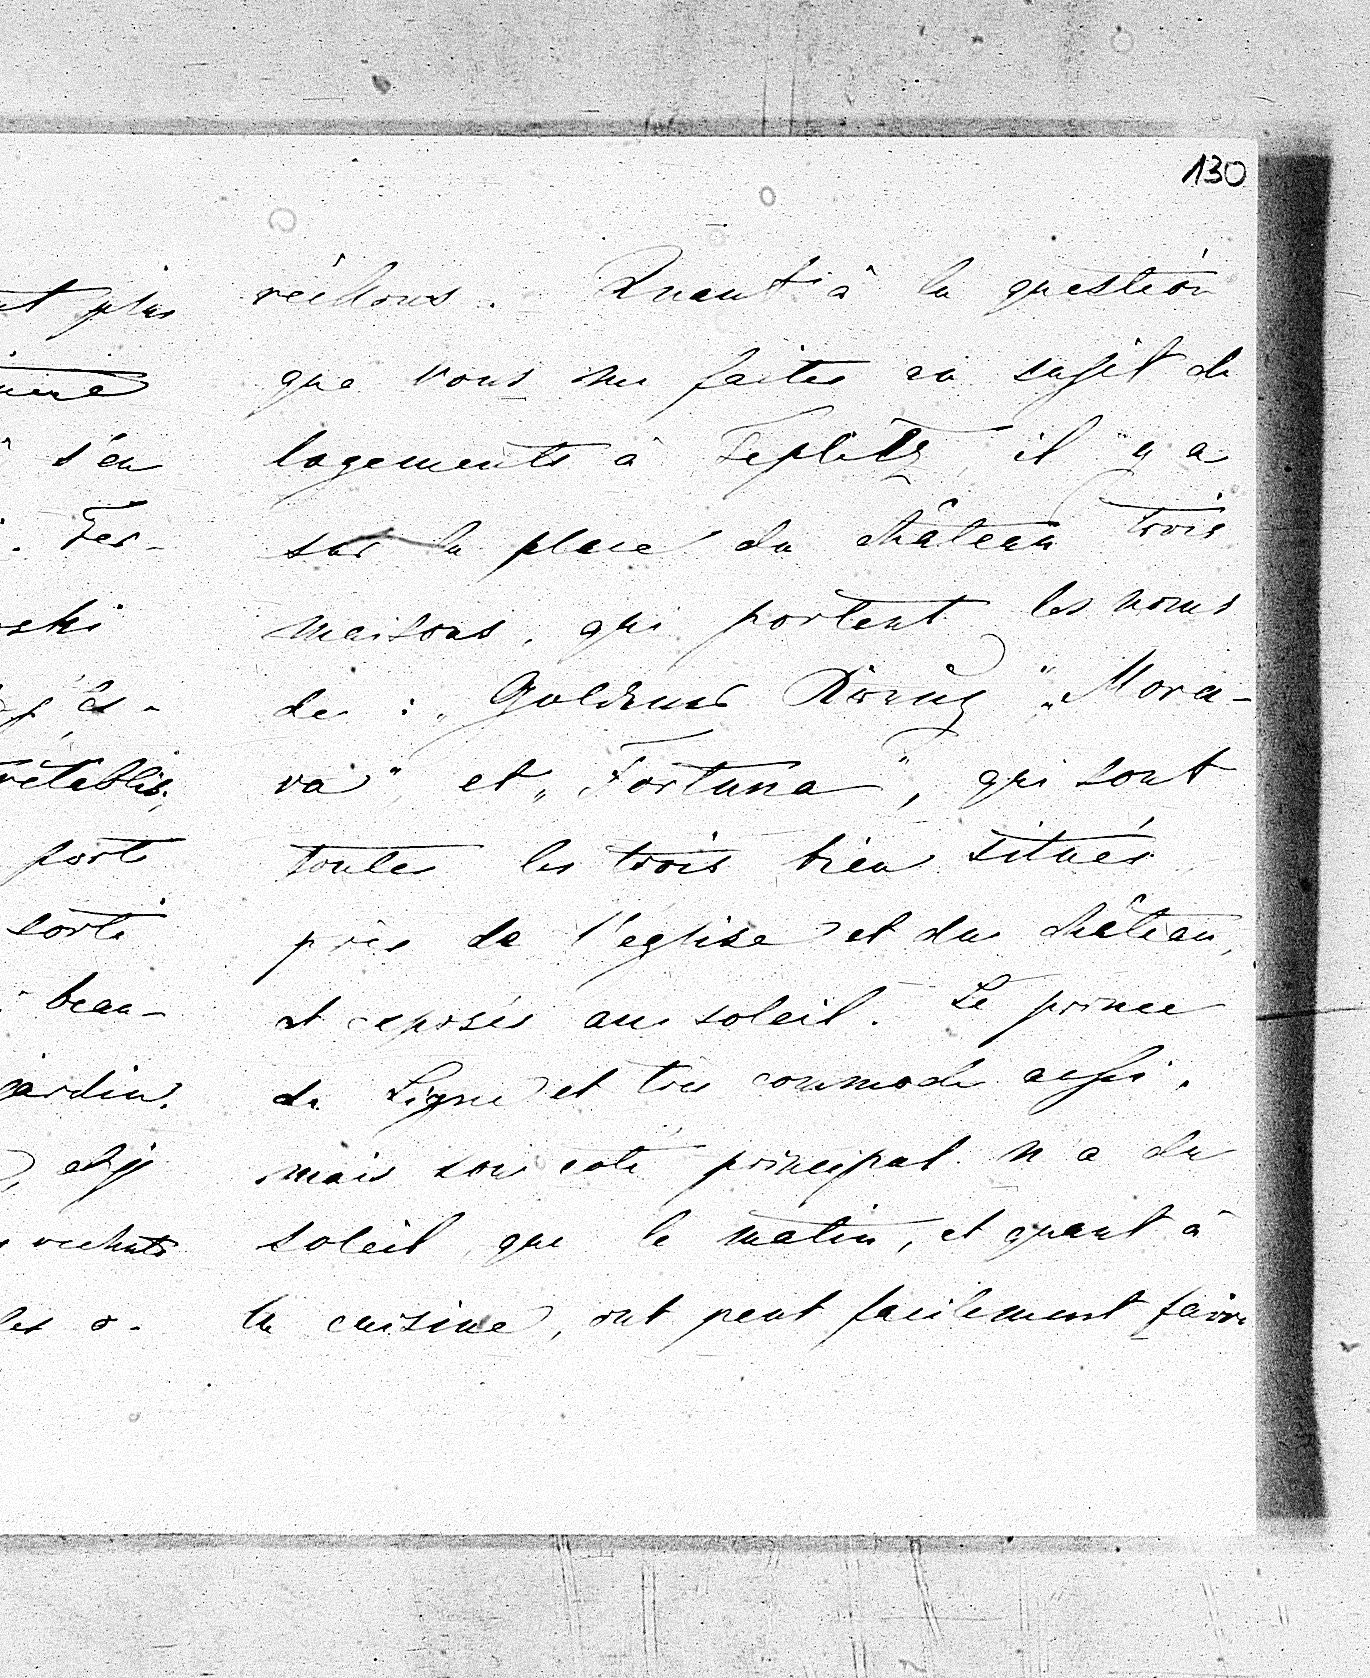 130
nt plus
s'en
Fer-
oski
es-
rétablis,
forte
sorti
beau-
jardin.
et j'
les o-
réillons. Quant à la question
que vous me faites au sujet de
logements à Teplitz, il y a
sur la place du château trois
maisons, qui portent les noms
de : „Goldenes Kreuz" „Mora-
va" et „Fortuna", qui sont
toutes les trois bien situés
près de l'eglise et du château,
et exposés au soleil. Le prince
de Ligne et très commode aussi,
mais son coté principal n'a du
soleil que le matin, et quant à
la cuisine, ont peut facilement faire